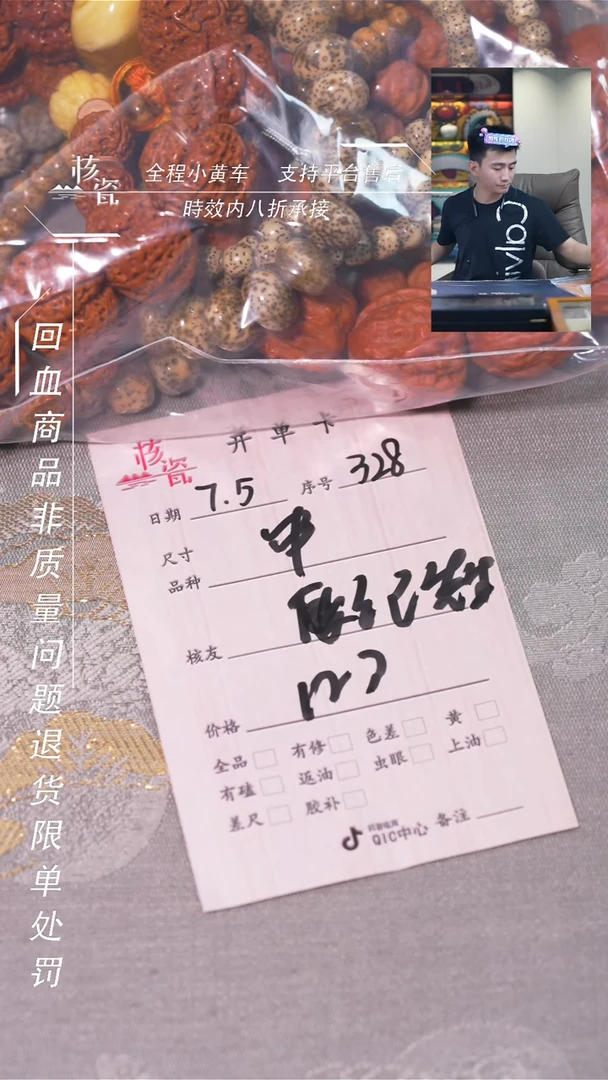 核瓷
全程小黄车 支持平台售后
時效内八折承接
回血商品非质量问题退货限单处罚
Calvin
核瓷
开单卡
日期 7.5 序号 328
尺寸 中
品种
核友
价格
全品 有修 色差 黄
有磕 返油 虫眼 上油
差尺 胶补
抖音电商
QIC中心 备注